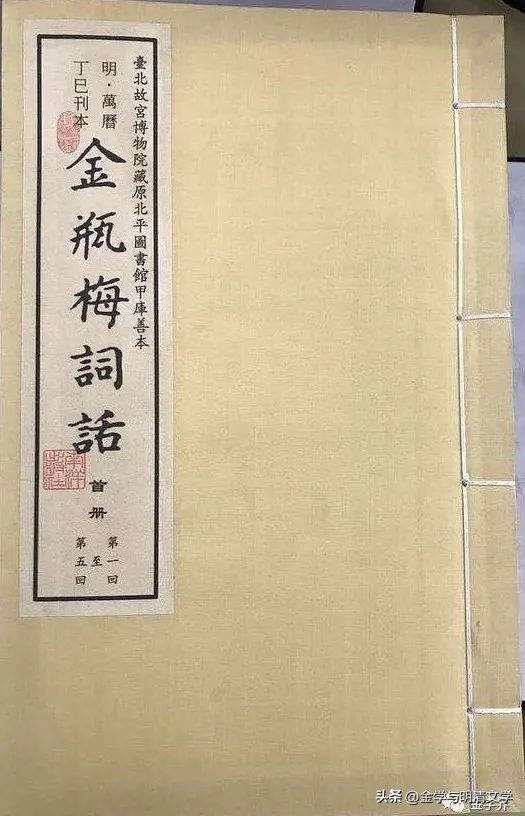 臺北故宮博物院藏原北平圖書館甲庫善本
明·萬曆
丁巳刊本
金瓶梅詞話
首册
第一回
至
第五回
头条 @金学与明清文学
金学界